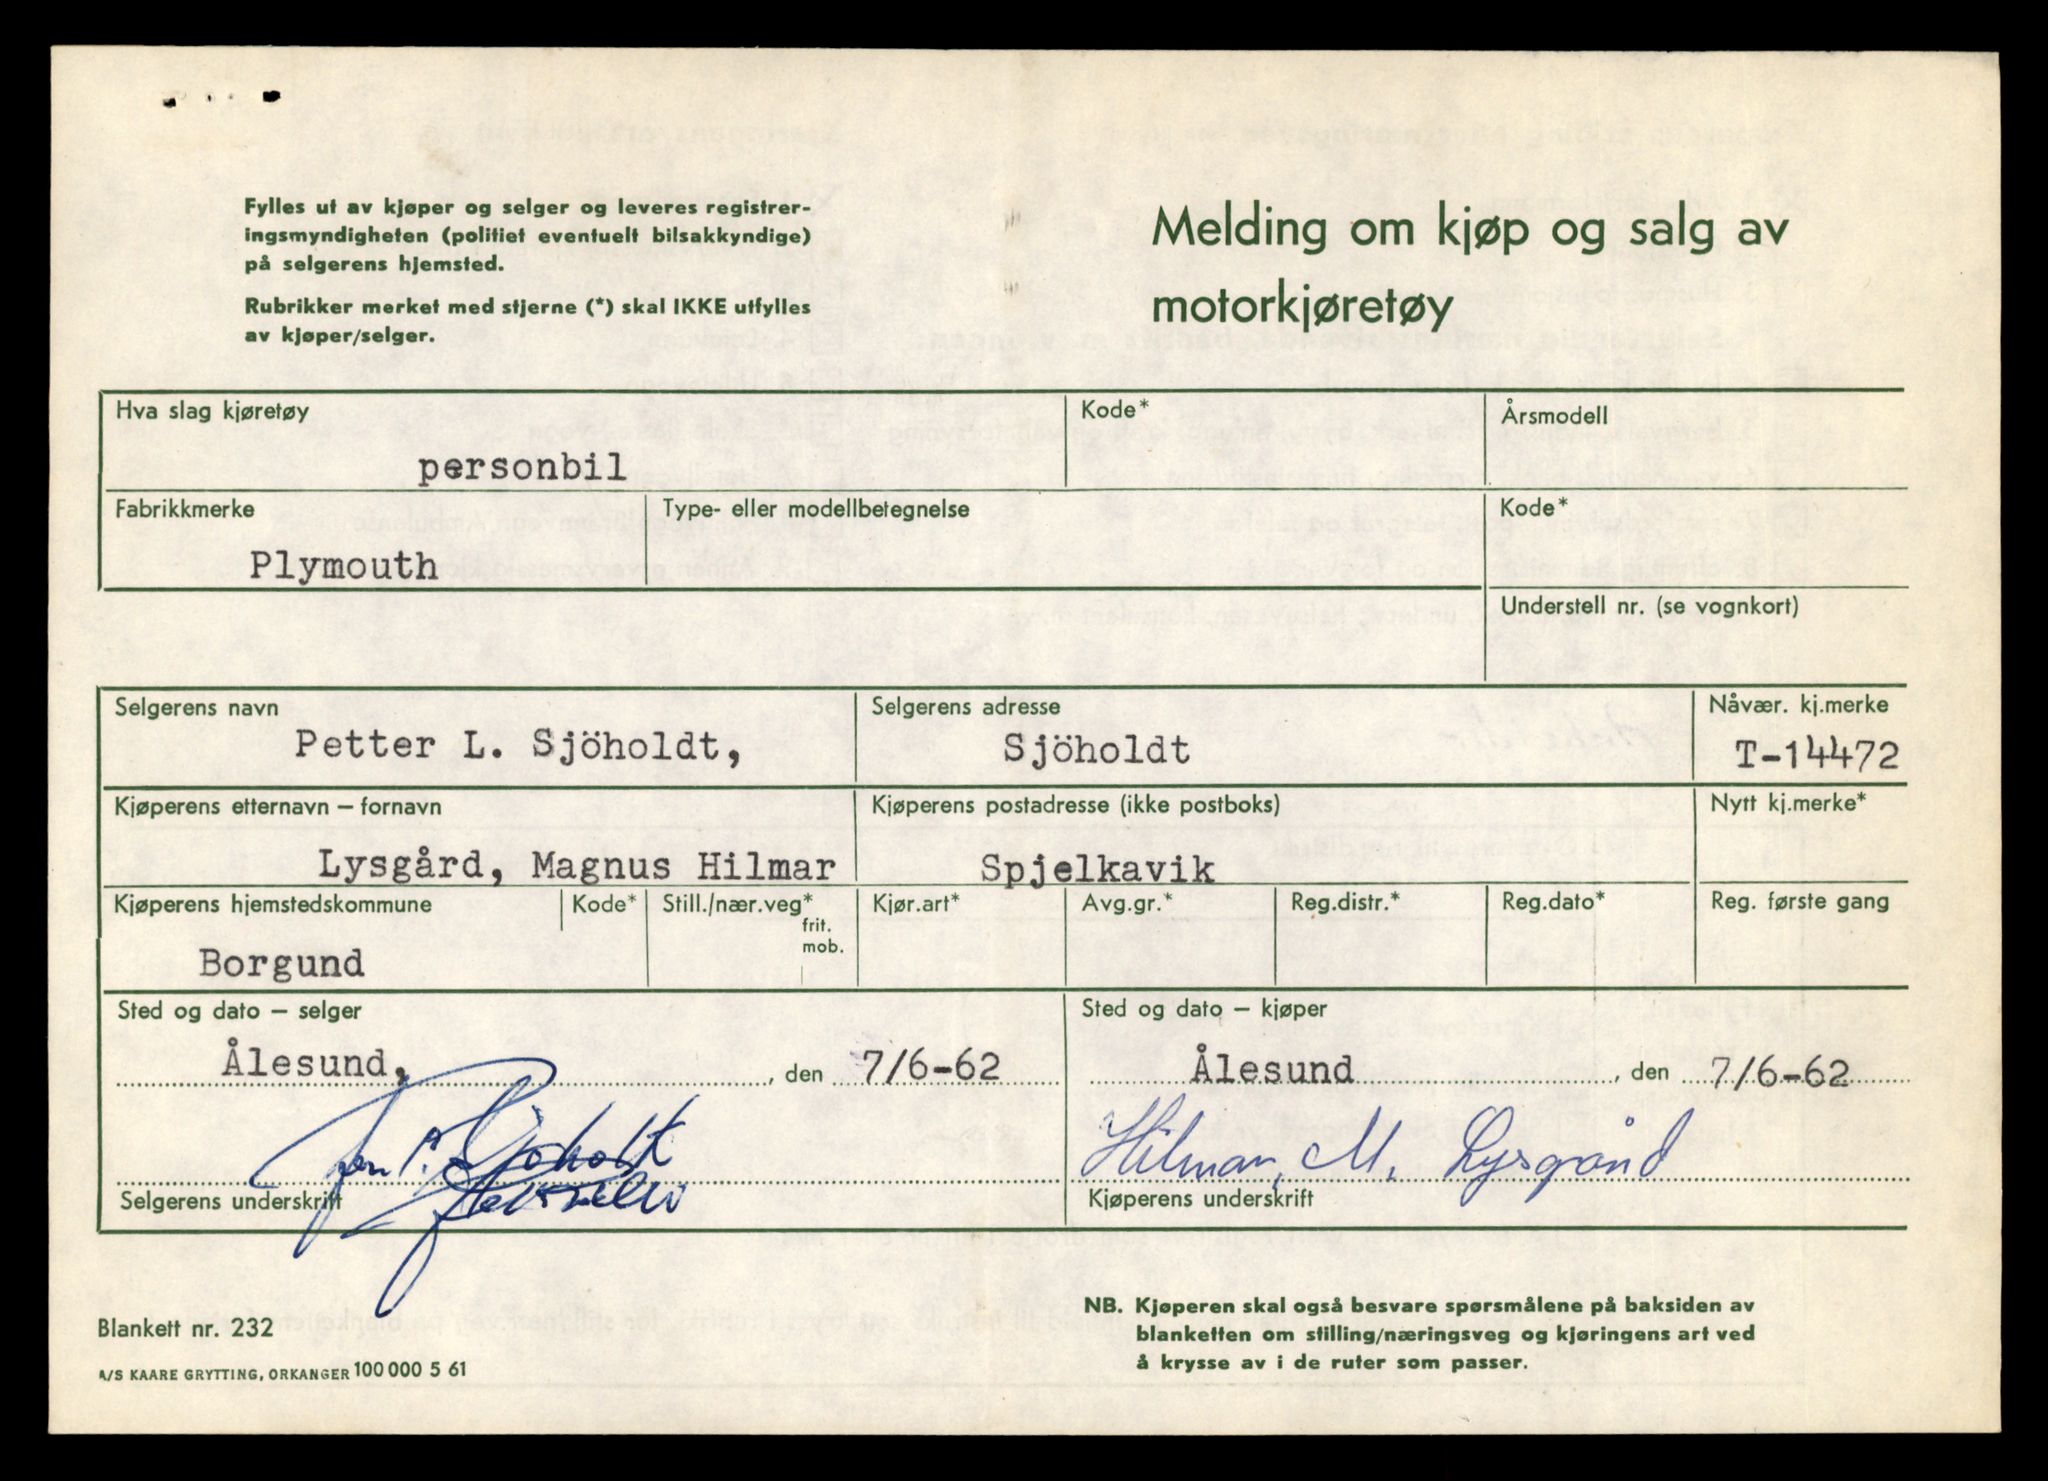 Fylles ut av kjøper og selger og leveres registrer-
ingsmyndigheten (politiet eventuelt bilsakkyndige)
på selgerens hjemsted.
Rubrikker merket med stjerne (*) skal IKKE utfylles
av kjøper/selger.
Melding om kjøp og salg av
motorkjøretøy
Hva slag kjøretøy
personbil
Kode*
Årsmodell
Fabrikkmerke
Plymouth
Type- eller modellbetegnelse
Kode*
Understell nr. (se vognkort)
Selgerens navn
Petter L. Sjöholdt,
Selgerens adresse
Sjöholdt
Nåvær. kj.merke
T-14472
Kjøperens etternavn – fornavn
Lysgård, Magnus Hilmar
Kjøperens postadresse (ikke postboks)
Spjelkavik
Nytt kj.merke*
Kjøperens hjemstedskommune
Borgund
Kode*
Still./nær.veg*
frit.
mob.
Kjør.art*
Avg.gr.*
Reg.distr.*
Reg.dato*
Reg. første gang
Sted og dato – selger
Ålesund, , den 7/6-62
Selgerens underskrift
Sted og dato – kjøper
Ålesund , den 7/6-62
Hilmar, M. Lysgård
Kjøperens underskrift
Blankett nr. 232
A/S KAARE GRYTTING, ORKANGER 100 000 5 61
NB. Kjøperen skal også besvare spørsmålene på baksiden av
blanketten om stilling/næringsveg og kjøringens art ved
å krysse av i de ruter som passer.